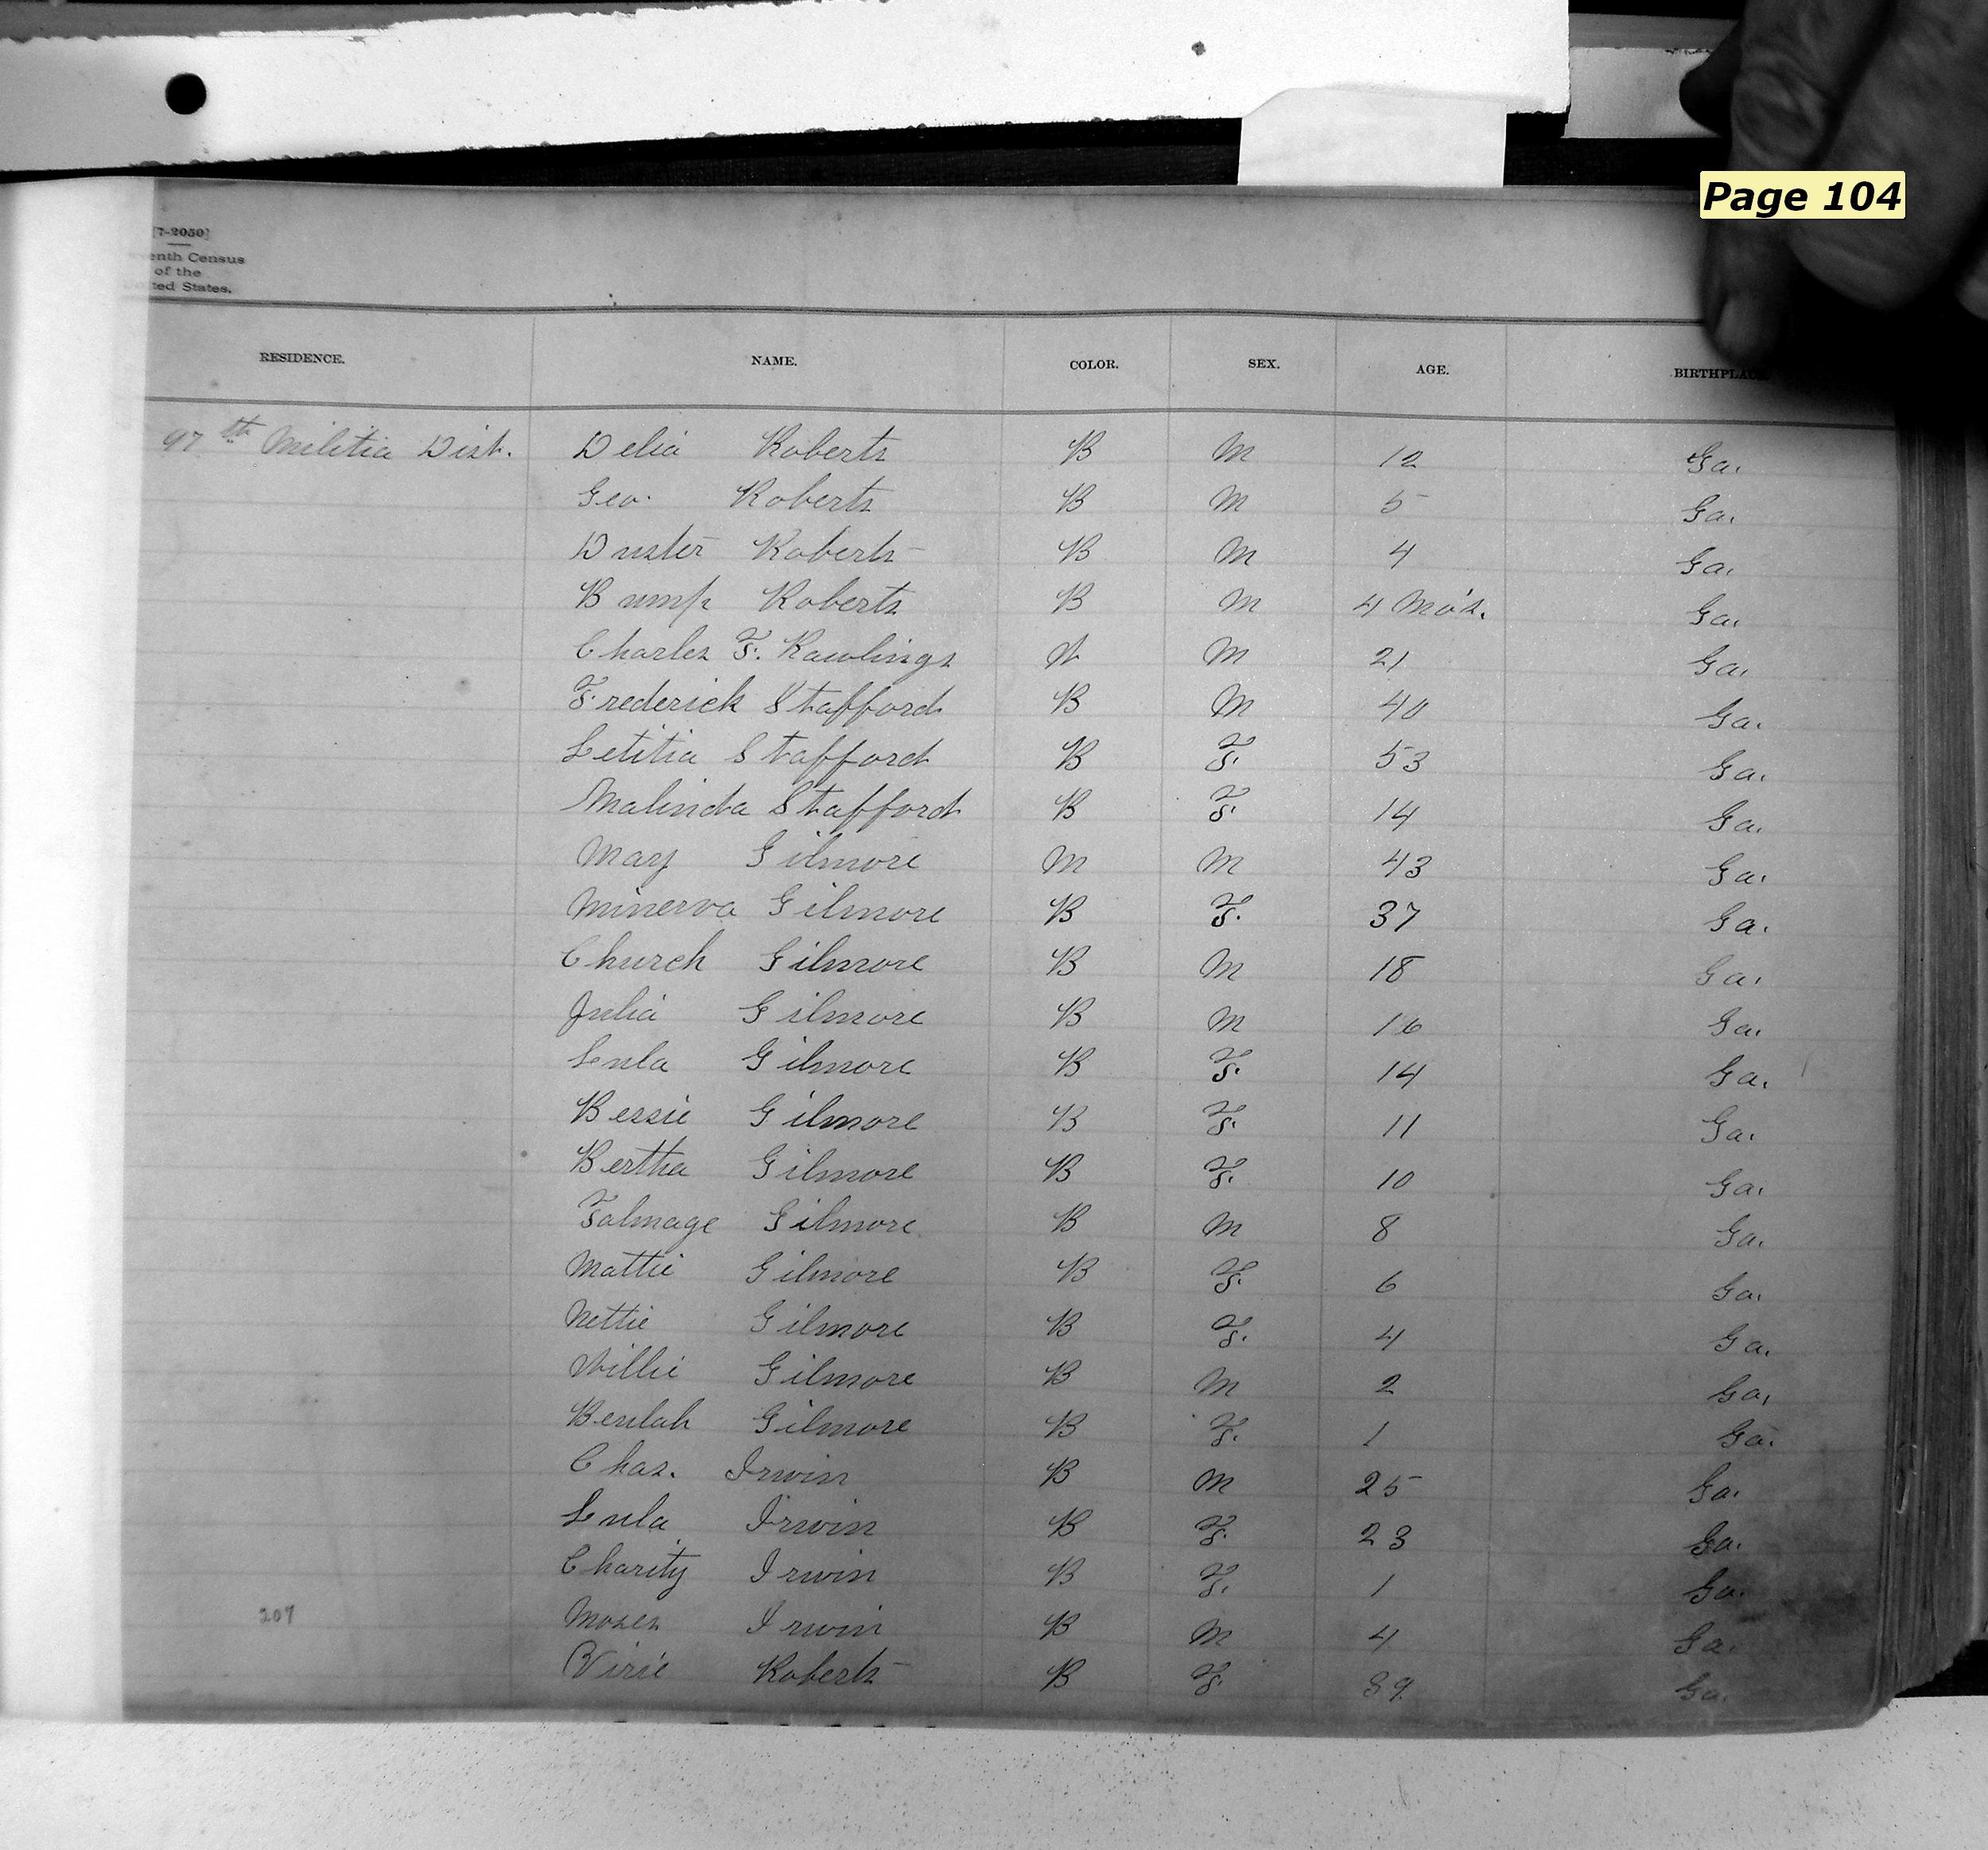 Page 104
[7-2050]
enth Census
of the
ted States.
RESIDENCE. NAME. COLOR. SEX. AGE. BIRTHPLACE
97th Militia Dist. Delia Roberts B M 12 Ga.
Geo. Roberts B M 5 Ga.
Duster Roberts B M 4 Ga.
Bump Roberts B M 4 Mo's. Ga.
Charles F. Rawlings W M 21 Ga.
Frederick Stafford B M 40 Ga.
Letitia Stafford B F. 53 Ga.
Malinda Stafford B F. 14 Ga.
Mary Gilmore M M 43 Ga.
Minerva Gilmore B F. 37 Ga.
Church Gilmore B M 18 Ga.
Julia Gilmore B M 16 Ga.
Lula Gilmore B F. 14 Ga.
Bessie Gilmore B F. 11 Ga.
Bertha Gilmore B F. 10 Ga.
Talmage Gilmore B M 8 Ga.
Mattie Gilmore B F. 6 Ga.
Nettie Gilmore B F. 4 Ga.
Willie Gilmore B M 2 Ga.
Beulah Gilmore B F. 1 Ga.
Chas. Irwin B M 25 Ga.
Lula Irwin B F. 23 Ga.
Charity Irwin B F. 1 Ga.
207 Moses Irwin B M 4 Ga.
Roberts B F. 39 Ga.